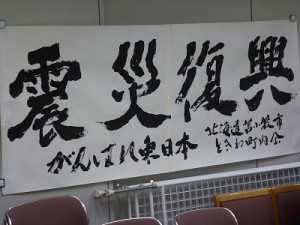 震災復興
がんばれ東日本
北海道苫小牧市
ときわ町内会